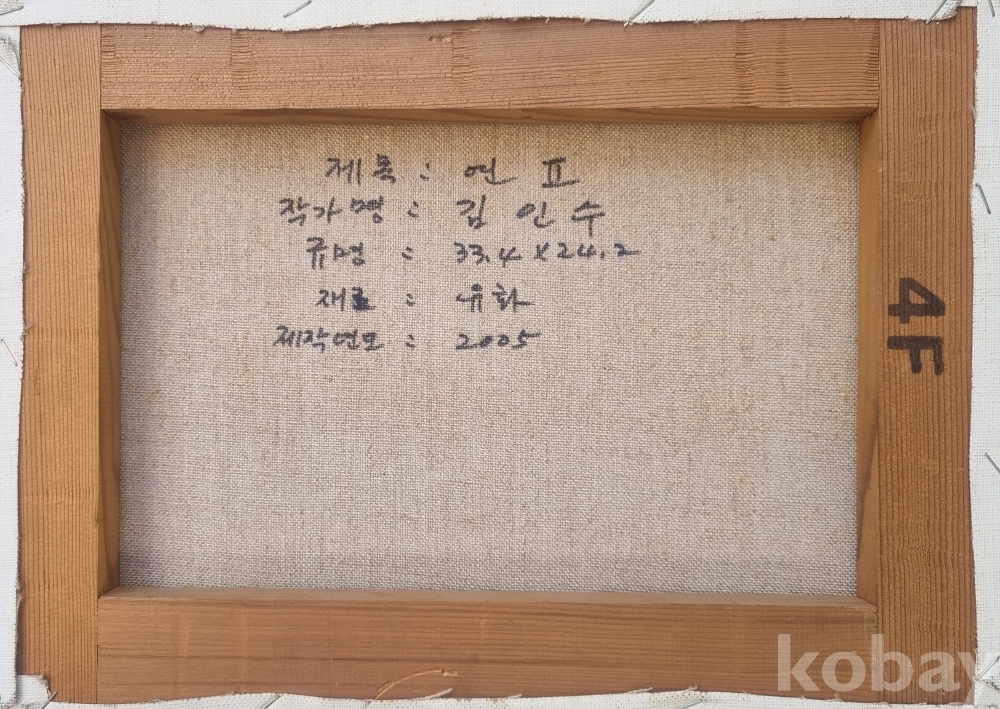 제목 : 연 Ⅱ
작가명 : 김인수
규명 : 33.4 x 24.2
재료 : 유화
제작연도 : 2005
4F
kobay